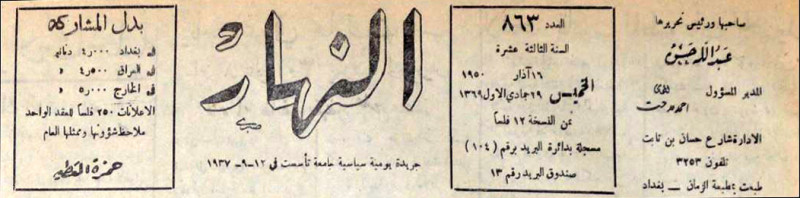 صاحبها ورئيس تحريرها
عبدالله حسن
المدير المسؤول
احمد مدحت
الادارة شارع حسان بن ثابت
تلفون ٣٢٥٣
طبعت بمطبعة الزمان — بغداد
العدد ٨٦٣
السنة الثالثة عشرة
١٦ آذار ١٩٥٠
الخميس
٢٩ جمادي الاول ١٣٦٩
ثمن النسخة ١٢ فلساً
مسجلة بدائرة البريد برقم (١٠٤)
صندوق البريد رقم ١٣
النهار
جريدة يومية سياسية جامعة تأسست في ١٢-٩-١٩٣٧
بدل المشاركة
في بغداد ٤,٠٠٠ دنانير
في العراق ٤,٥٠٠ »
في الخارج ٥,٠٠٠ »
الاعلانات ٢٥٠ فلساً للعقد الواحد
ملاحظ شؤونها وممثلها العام
حمزة